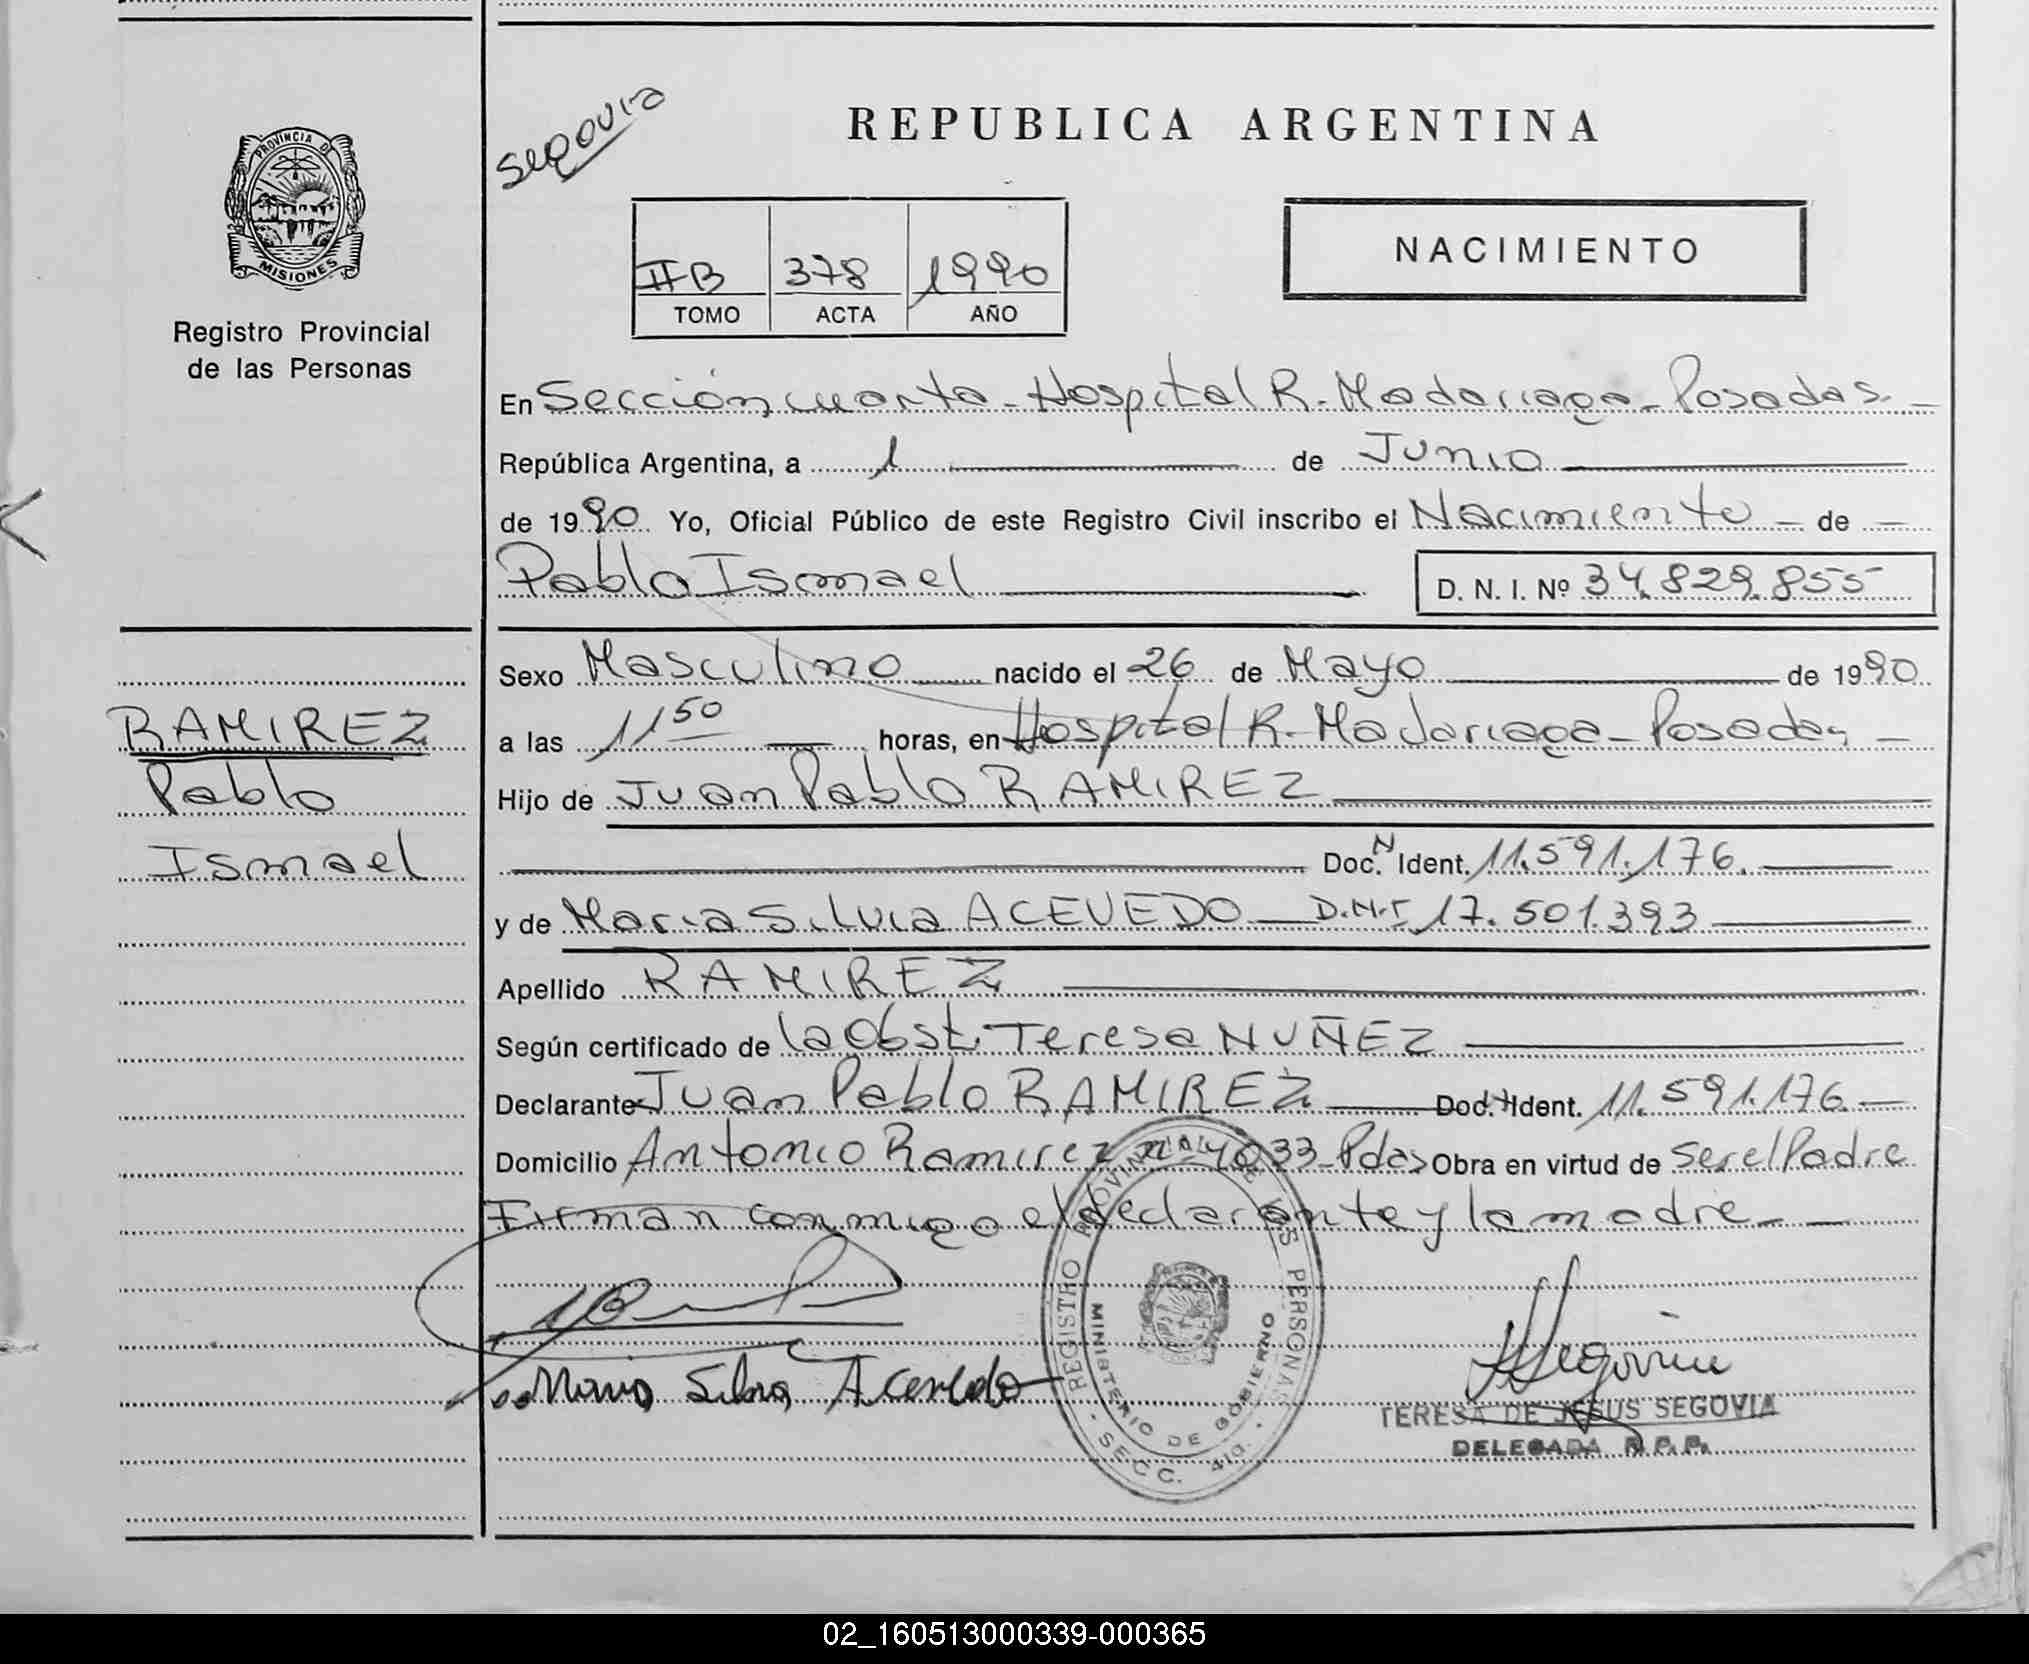 PROVINCIA D
MISIONES
Registro Provincial
de las Personas
RAMIREZ
Pablo
Ismael
Segovia
REPUBLICA ARGENTINA
IIB 378 1990
TOMO ACTA AÑO
NACIMIENTO
En Sección cuarta - Hospital R. Madariaga - Posadas. -
República Argentina, a 1 de Junio
de 1990 Yo, Oficial Público de este Registro Civil inscribo el Nacimiento - de -
Pablo Ismael D. N. I. Nº 34.829.855
Sexo Masculino nacido el 26 de Mayo de 1990
a las 11 50 horas, en Hospital R. Madariaga - Posadas -
Hijo de Juan Pablo RAMIREZ
Doc. N Ident. 11.591.176.
y de Maria Silvia ACEVEDO - D.N.I 17.501.393
Apellido RAMIREZ
Según certificado de la Obst. Teresa NUÑEZ
Declarante Juan Pablo RAMIREZ Doc. Ident. 11.591.176. -
Domicilio Antonio Ramirez nº 4033 - Pdas Obra en virtud de ser el Padre
Firman conmigo el declarante y la madre - -
Maria Silvia Acevedo
REGISTRO PROVINCIAL DE LAS PERSONAS
MINISTERIO DE GOBIERNO
SECC. 4ta.
Segovia
TERESA DE JESUS SEGOVIA
DELEGADA R.P.P.
02_160513000339-000365